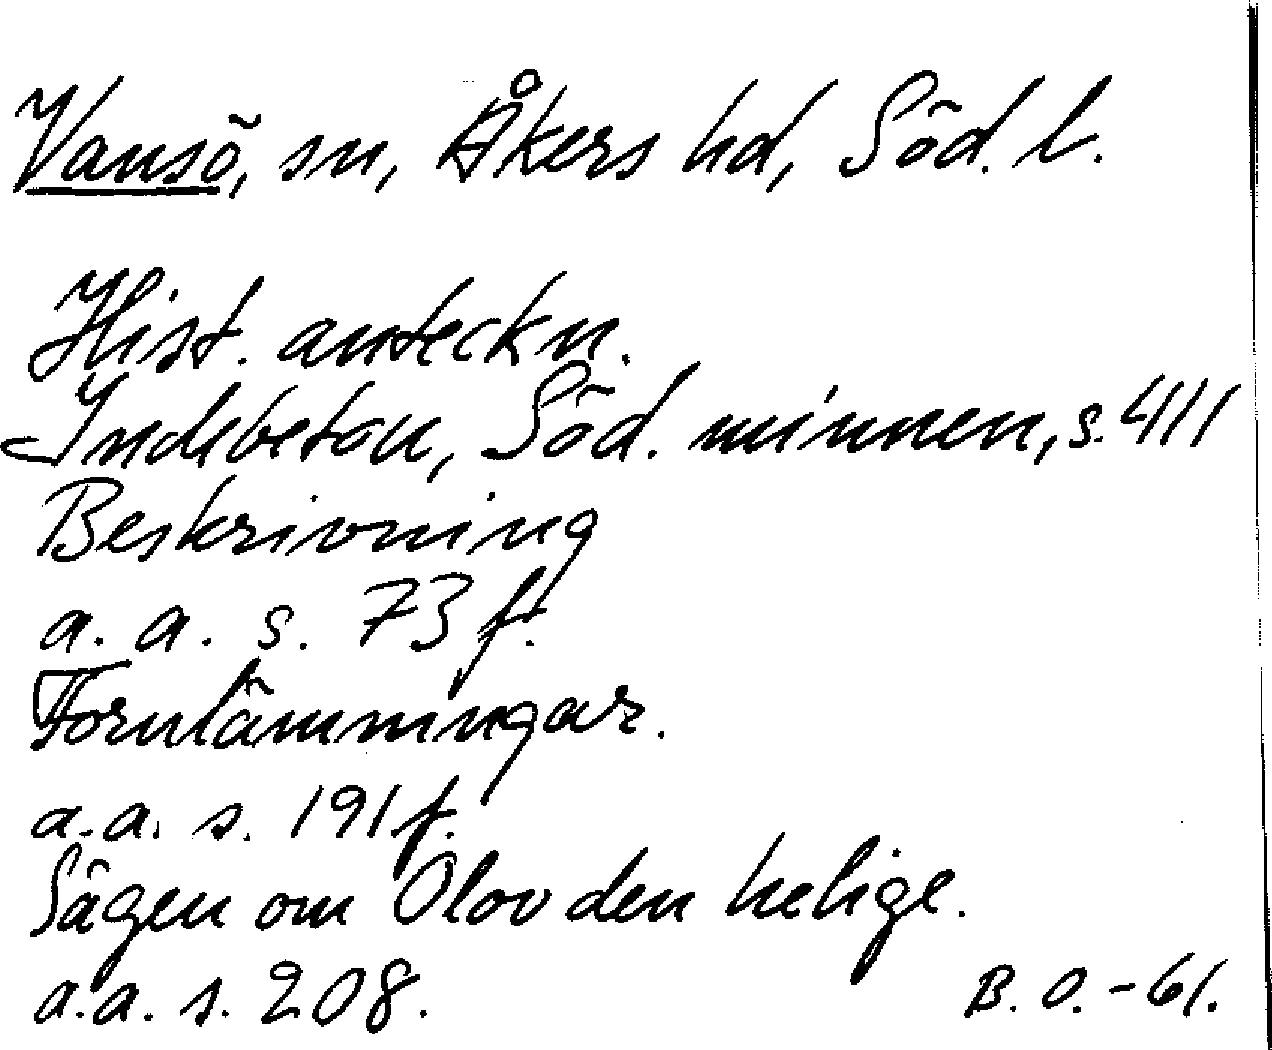 Vansö, sn, Åkers hd, Söd. l.
Hist. anteckn.
Indebetou, Söd. minnen, s. 411
Beskrivning
a. a. s. 73 f.
Fornlämningar.
a.a. s. 191 f.
Sägen om Olov den helige.
a.a. s. 208.
B. O. -61.